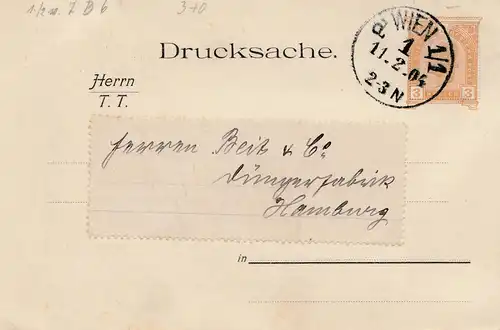 1/2 m. 7 B 6
3+0
Drucksache.
P WIEN 1/1
1
11.2.04
2-3 N
3 3
Herrn
T. T.
Herren Beit & Co
Düngerfabrik
Hamburg
in